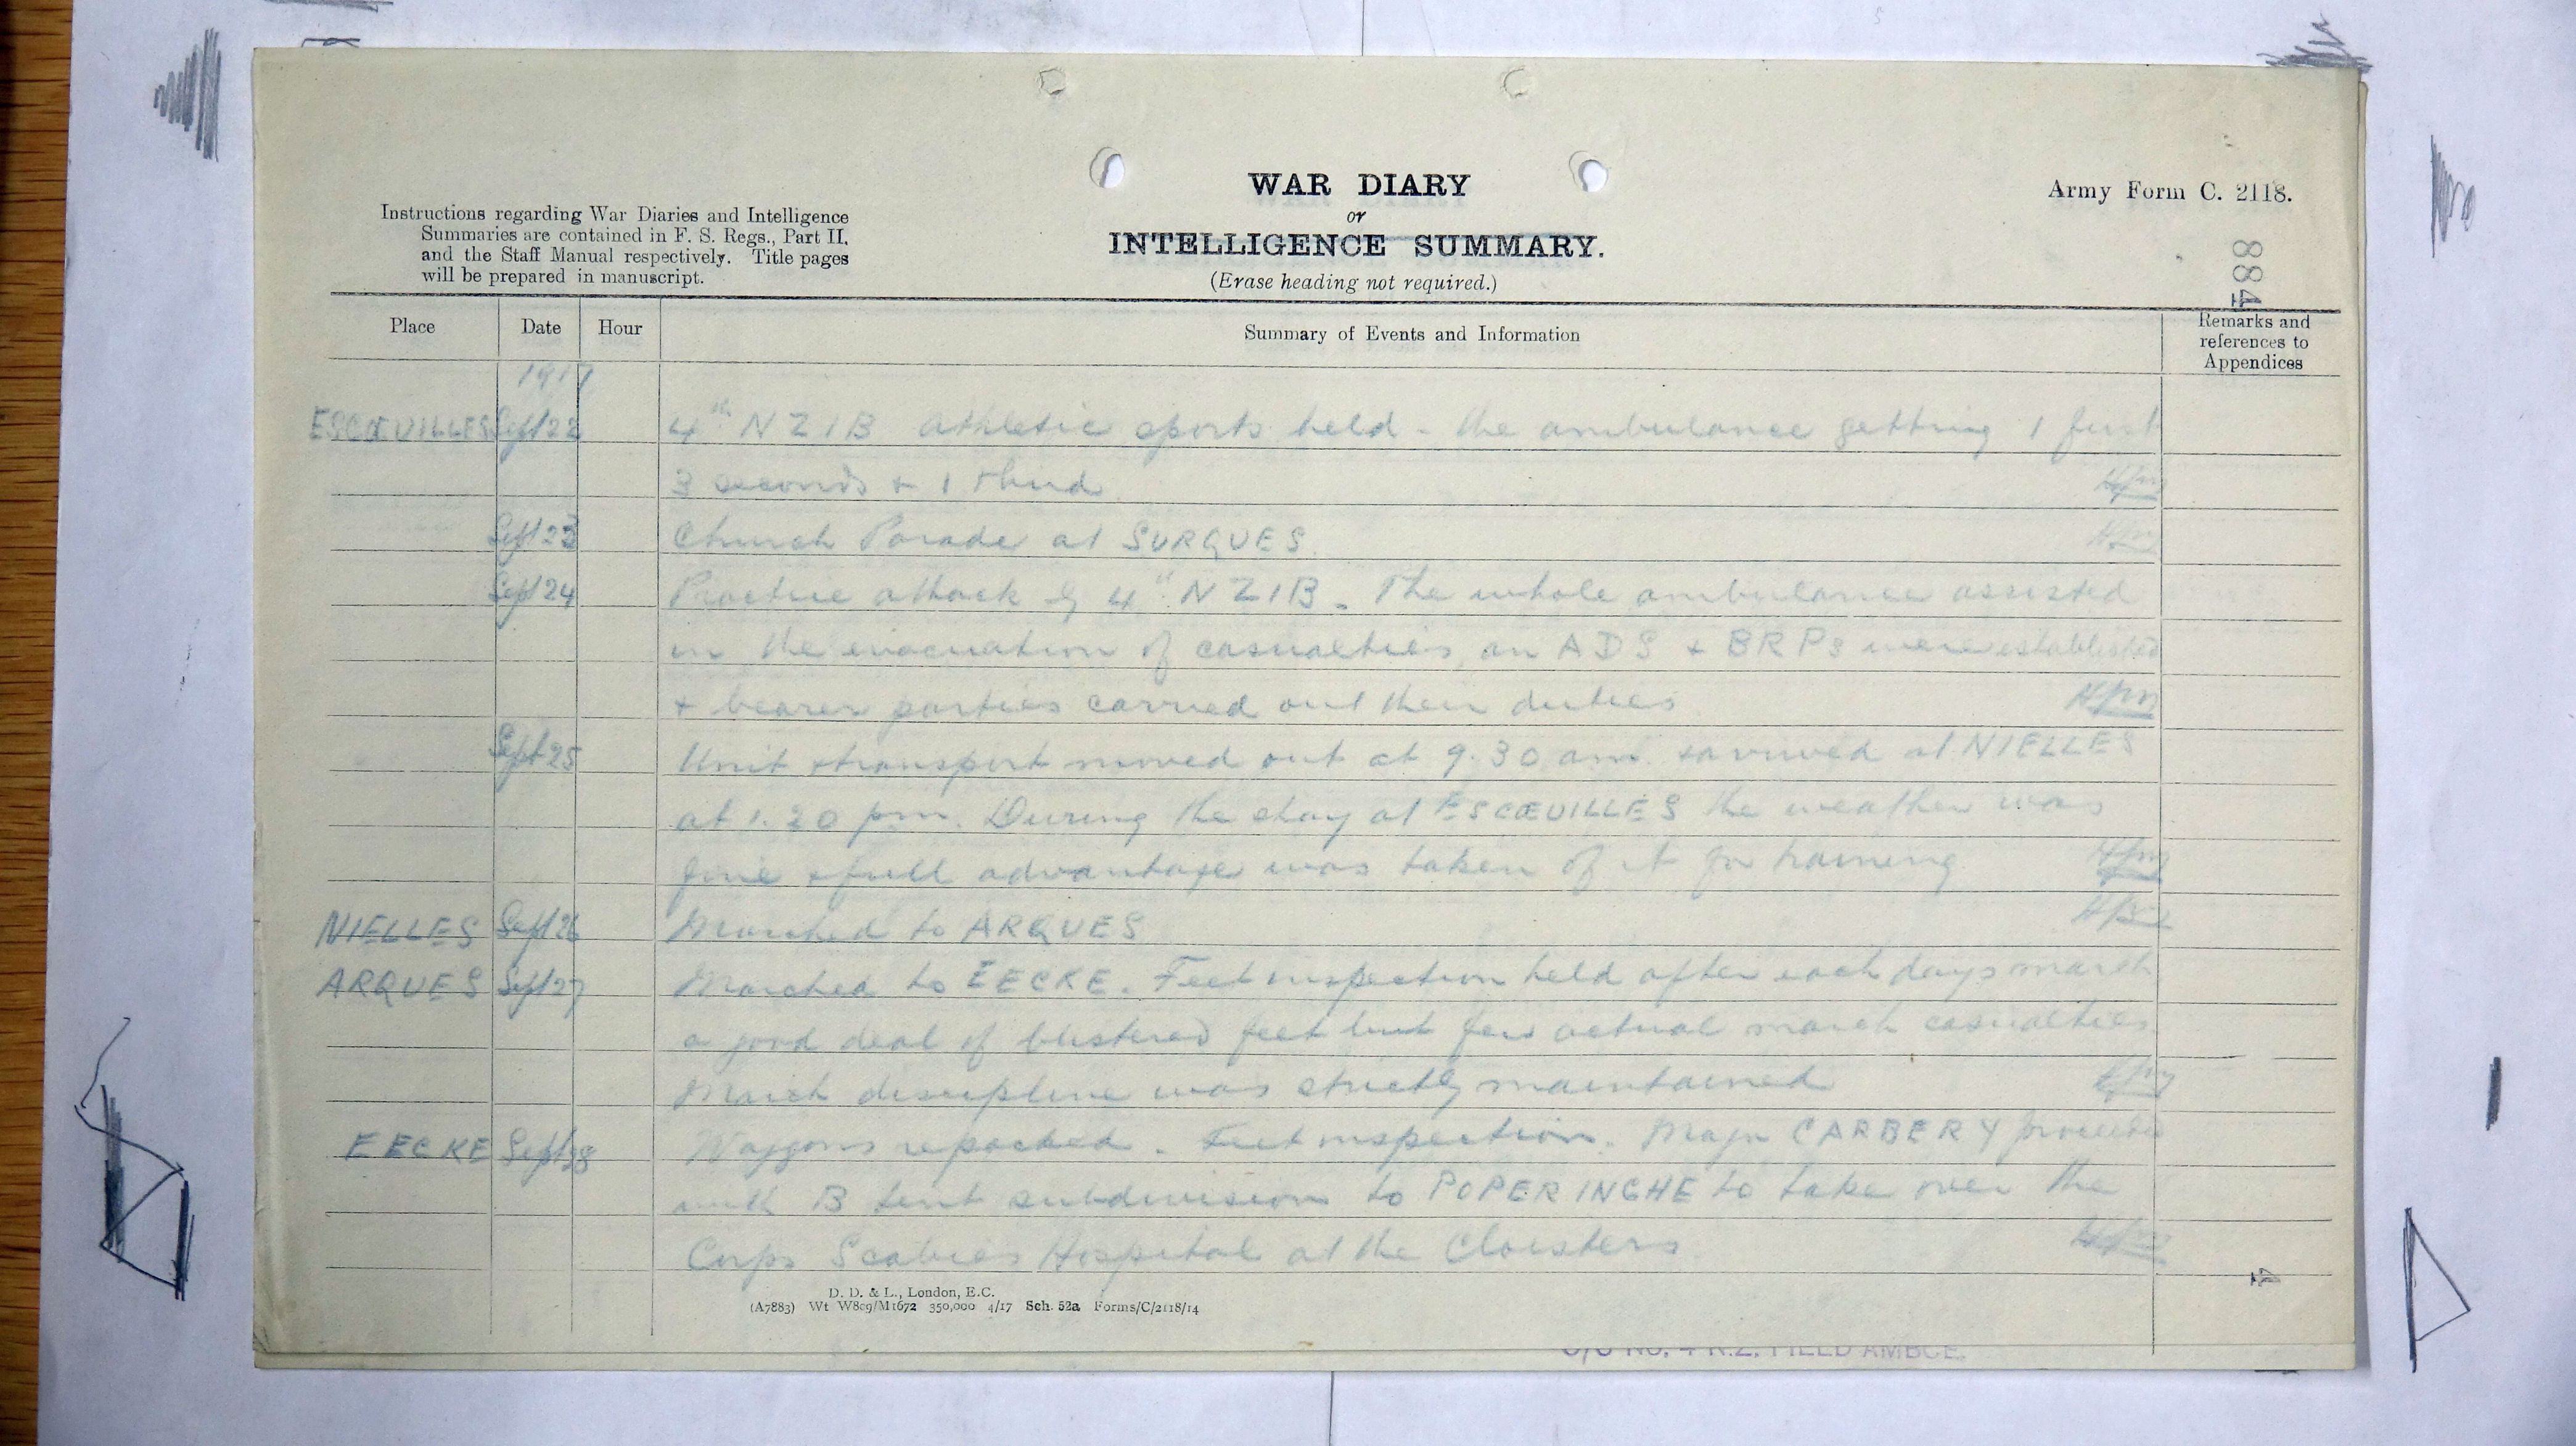 WAR DIARY
or
INTELLIGENCE SUMMARY.
(Erase heading not required.)
Instructions regarding War Diaries and Intelligence
Summaries are contained in F. S. Regs., Part II,
and the Staff Manual respectively. Title pages
will be prepared in manuscript.
Army Form C. 2118.
884
Place Date Hour Summary of Events and Information Remarks and
references to
Appendices
1917
ESCŒUILLES Sept 22 4th NZIB athletic sports held - the ambulance getting 1 first
3 seconds + 1 third
Sept 23 Church Parade at SURQUES
Sept 24 Practice attack by 4th NZIB. The whole ambulance assisted
in the evacuation of casualties, an ADS + BRPs were established
+ bearer parties carried out their duties
Sept 25 Unit + transport moved out at 9.30 am + arrived at NIELLES
at 1.20 pm. During the stay at ESCŒUILLES the weather was
fine + full advantage was taken of it for training
NIELLES Sept 26 Marched to ARQUES
ARQUES Sept 27 Marched to EECKE. Feet inspection held after each days march
a good deal of blistered feet but few actual march casualties
March discipline was strictly maintained
EECKE Sept 28 Waggons repacked. Feet inspection. Major CARBERY proceeded
with B tent subdivision to POPERINGHE to take over the
Corps Scabies Hospital at the Cloisters.
D. D. & L., London, E.C.
(A7883) Wt W809/M1672 350,000 4/17 Sch. 52a Forms/C/2118/14
4
O/C No. 4 N.Z. FIELD AMBCE.